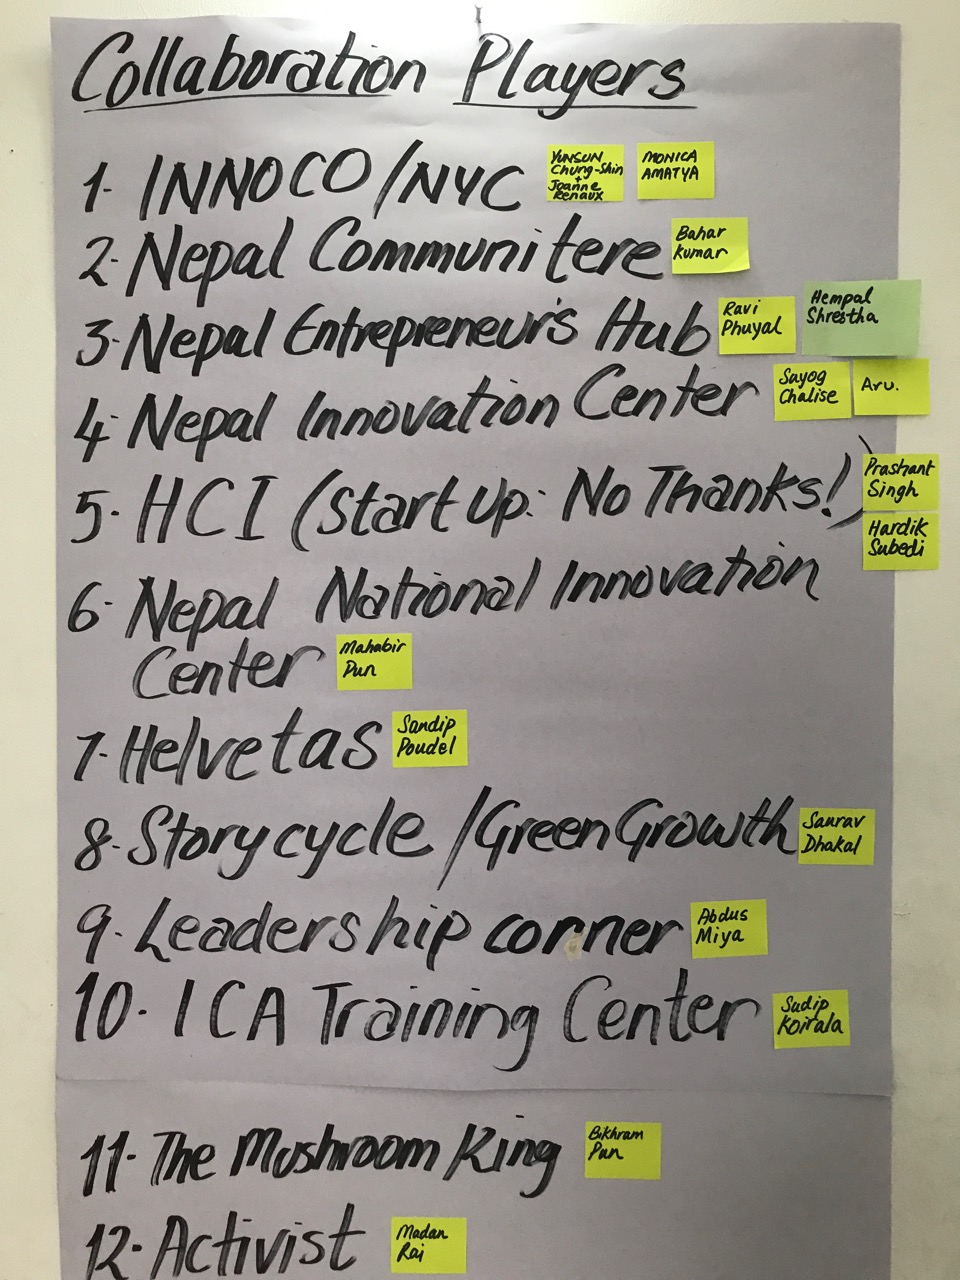 Collaboration Players
1- INNOCO/NYC
YUNSUN
Chung-Shin
+
Joanne
Renaux
MONICA
AMATYA
2- Nepal Communitere
Bahar
Kumar
3- Nepal Entrepreneur's Hub
Ravi
Phuyal
Hempal
Shrestha
4- Nepal Innovation Center
Sayog
Chalise
Aru.
5- HCI (Start Up: No Thanks!)
Prashant
Singh
Hardik
Subedi
6- Nepal National Innovation
Center
Mahabir
Pun
7- Helvetas
Sandip
Poudel
8- Story cycle /Green Growth
Saurav
Dhakal
9- Leadership corner
Abdus
Miya
10- ICA Training Center
Sudip
Koirala
11- The Mushroom King
Bikhram
Pun
12- Activist
Madan
Rai